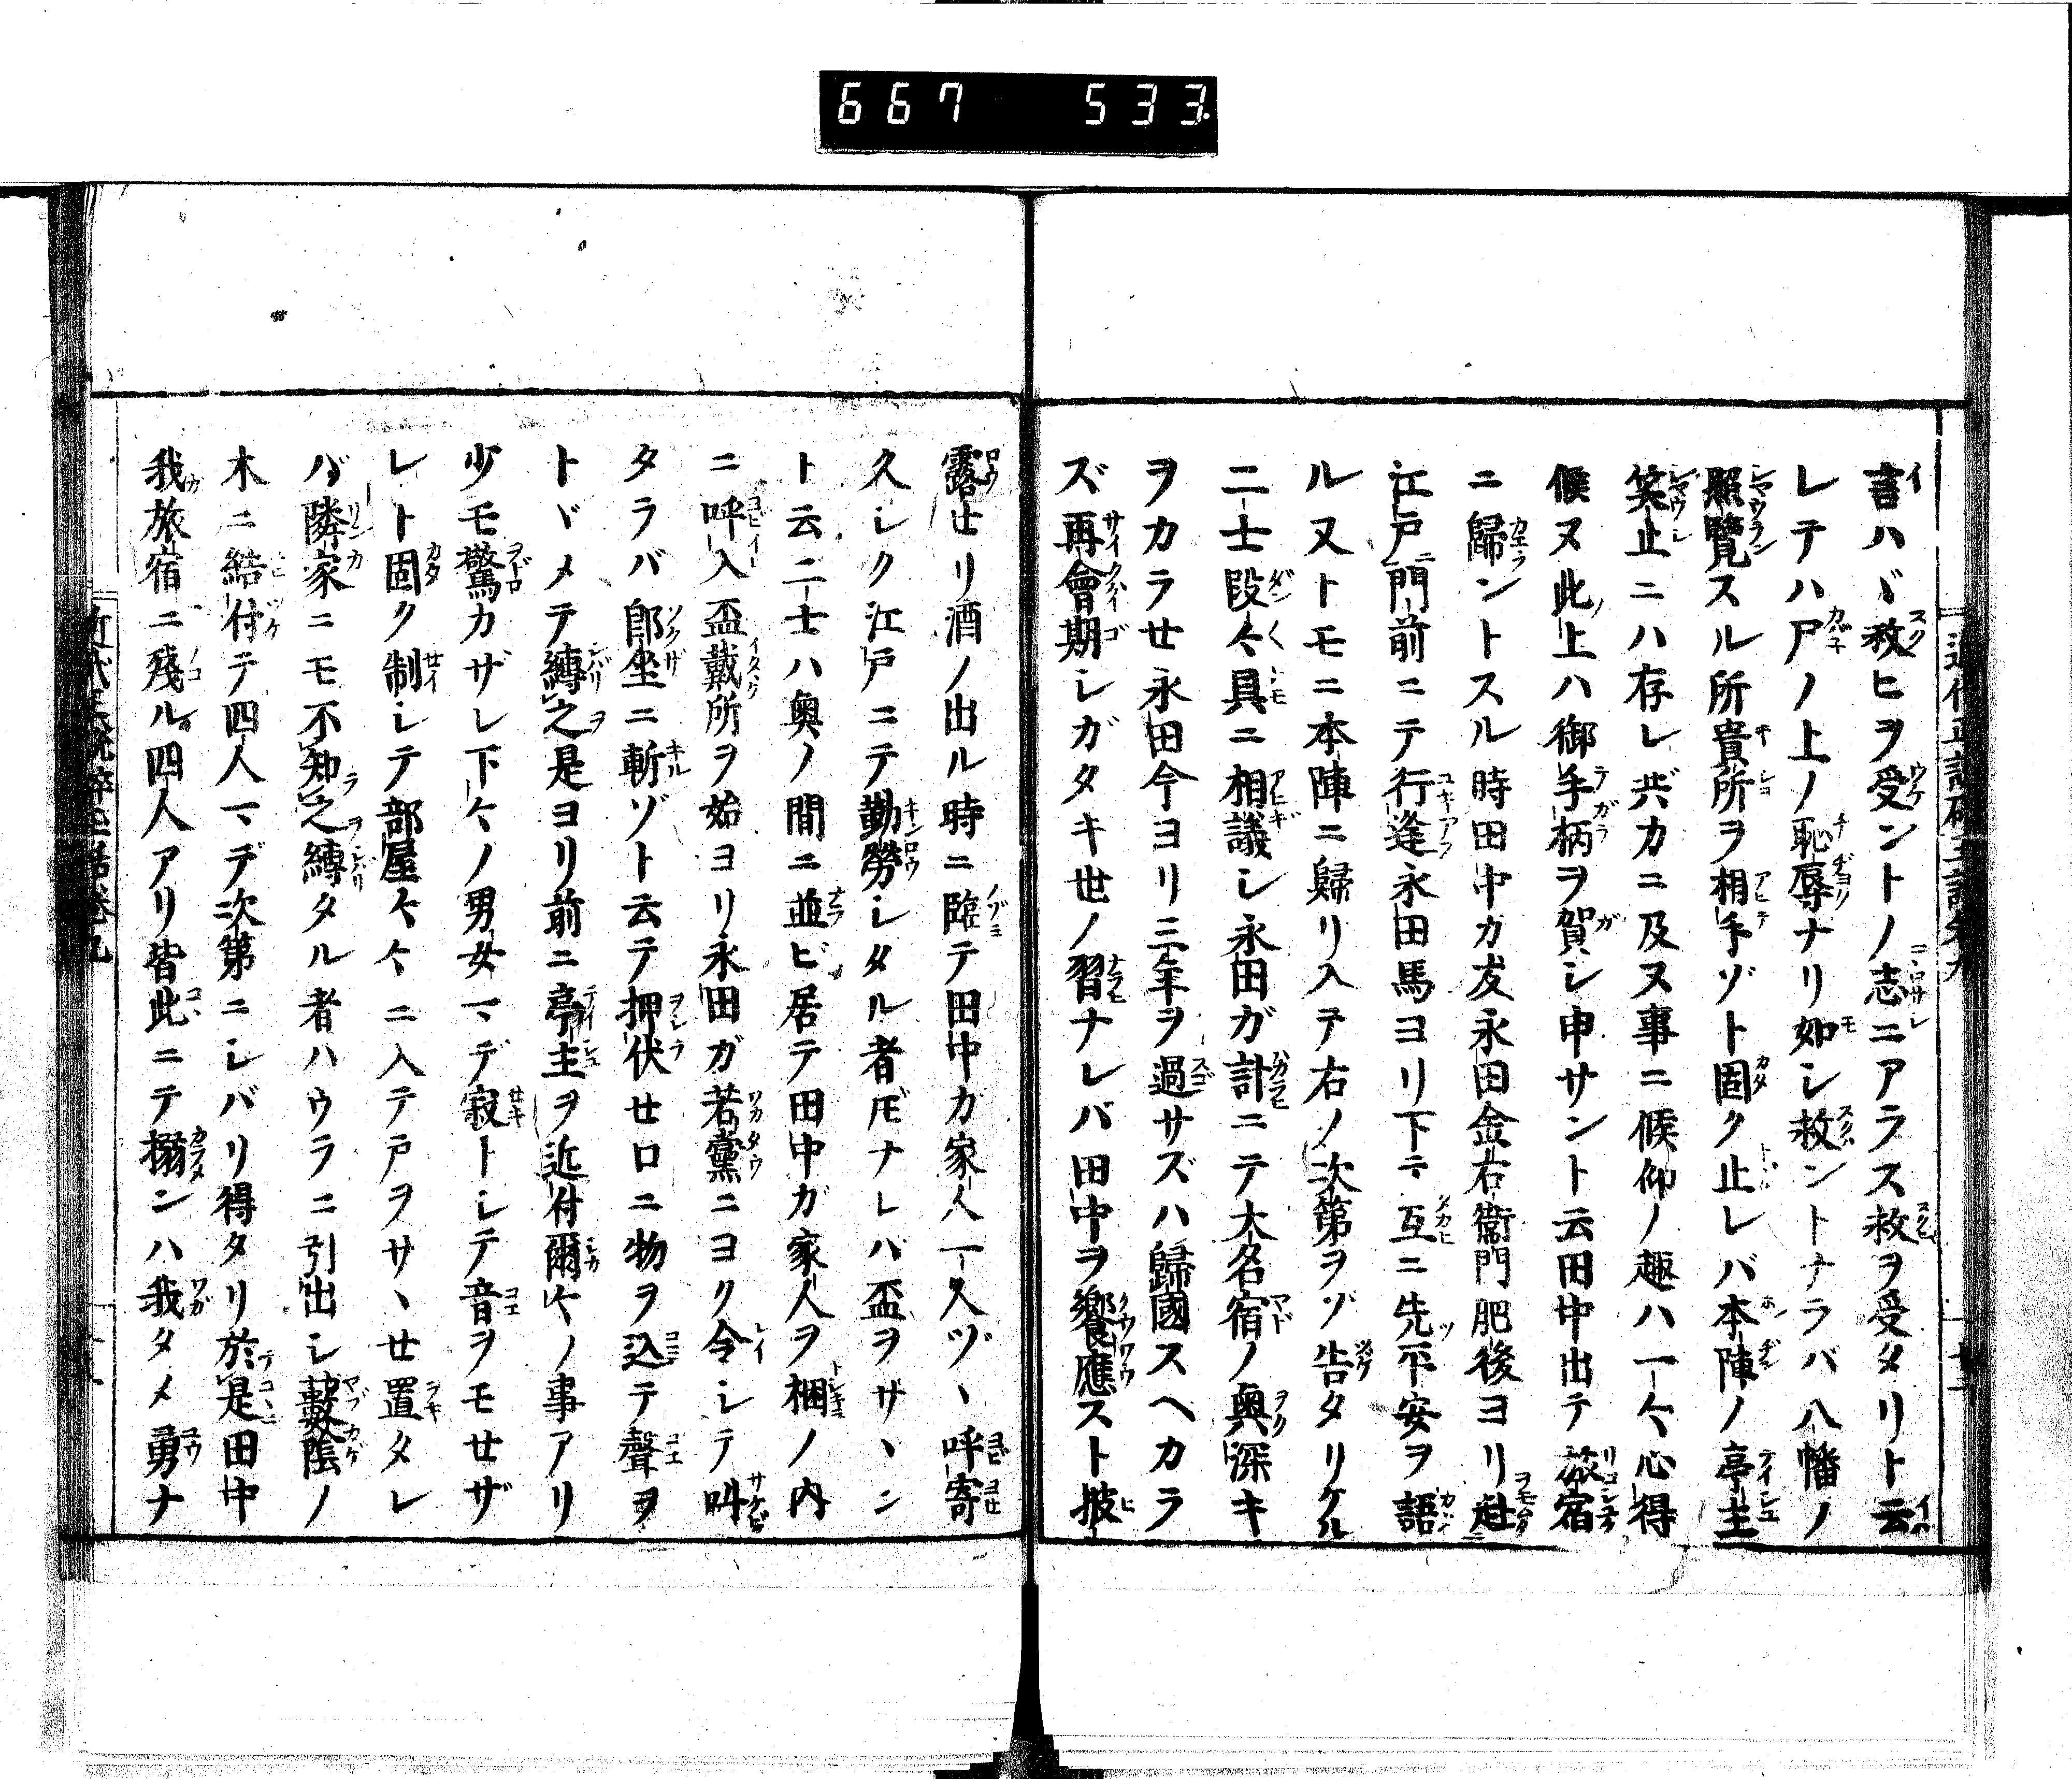 667 533
言ハヾ救ヒヲ受ントノ志ニアラス救ヲ受タリト云
レテハ尸ノ上ノ恥辱ナリ如シ救ントナラバ八幡ノ
照覽スル所貴所ヲ相手ゾト固ク止レバ本陣ノ亭主
笑止ニハ存レ共カニ及ヌ事ニ候仰ノ趣ハ一々心得
候ヌ此上ハ御手柄ヲ賀シ申サント云田中出テ旅宿
ニ歸ントスル時田中カ友永田金右衞門肥後ヨリ赴
江戸門前ニテ行逢永田馬ヨリ下テ互ニ先平安ヲ語
ル又トモニ本陣ニ歸リ入テ右ノ次第ヲゾ告タリケル
二士段々具ニ相議シ永田ガ計ニテ大名宿ノ奥深キ
ヲカラせ永田今ヨリ三年ヲ過サズハ歸國スヘカラ
ズ再會期シガタキ世ノ習ナレバ田中ヲ饗應スト披
露せリ酒ノ出ル時ニ臨テ田中カ家人一人ヅヽ呼寄
久シク江戸ニテ勤勞シタル者ドモナレバ盃ヲサヽン
ト云二士ハ奥ノ間ニ並ビ居テ田中ガ家人ヲ梱ノ内
ニ呼入盃戴所ヲ始ヨリ永田ガ若黨ニヨク令シテ叫
タラバ即坐ニ斬ゾト云テ押伏せ口ニ物ヲ込テ聲ヲ
トヾメテ縛之是ヨリ前ニ亭主ヲ近付爾々ノ事アリ
少モ驚カザレ下々ノ男女マデ寂トシテ音ヲモせザ
レト固ク制シテ部屋々々ニ入テ戸ヲサヽせ置タレ
バ隣家ニモ不知之縛タル者ハウラニ引出シ藪陰ノ
木ニ結付テ四人マデ次第ニシバリ得タリ於是田中
我旅宿ニ殘ル四人アリ皆此ニテ搦ンハ我タメ勇ナ